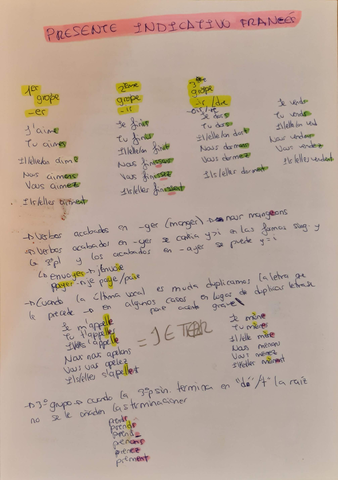 PRESENTE INDICATIVO FRANCÉS
1er grope -er
J'aime
Tu aimes
Il/elle/on aime
Nous aimons
Vous aimez
Ils/elles aiment
2ème grope -ir
Je finis
Tu finis
Il/elle/on finit
Nous finissons
Vous finissez
Ils/elles finissent
grope -ir/-dre
Je dors
Tu dors
Il/elle/on dort
Nous dormons
Vous dormez
Ils/elles dorment
Je vends
Tu vends
Il/elle/on vend
Nous vendons
Vous vendez
Ils/elles vendent
→ Verbos acabados en -ger (manger) → nous mangeons
→ Verbos acabados en -yer se cambia y→i en las formas sing y
la 3ªpl y los acabados en -ayer se puede y=i
envoyer → j'envoie
payer → je paye/paie
→ Cuando la última vocal es muda duplicamos la letra que
le precede → en algunos casos, en lugar de duplicar letra se
pone acento grave
Je m'appelle
Tu t'appelles
Il/elle s'appelle
Nous nous
Vous vous
Ils/elles s'appellent
= JETER
Je mène
Tu mènes
Il/elle mène
Nous menons
Vous menez
Ils/elles mènent
→ 3º grupo → cuando la 3ªp sin. termina en "d"/"t" la raíz
no se le añaden las terminaciones
prends
prends
prend
prenons
prenez
prennent